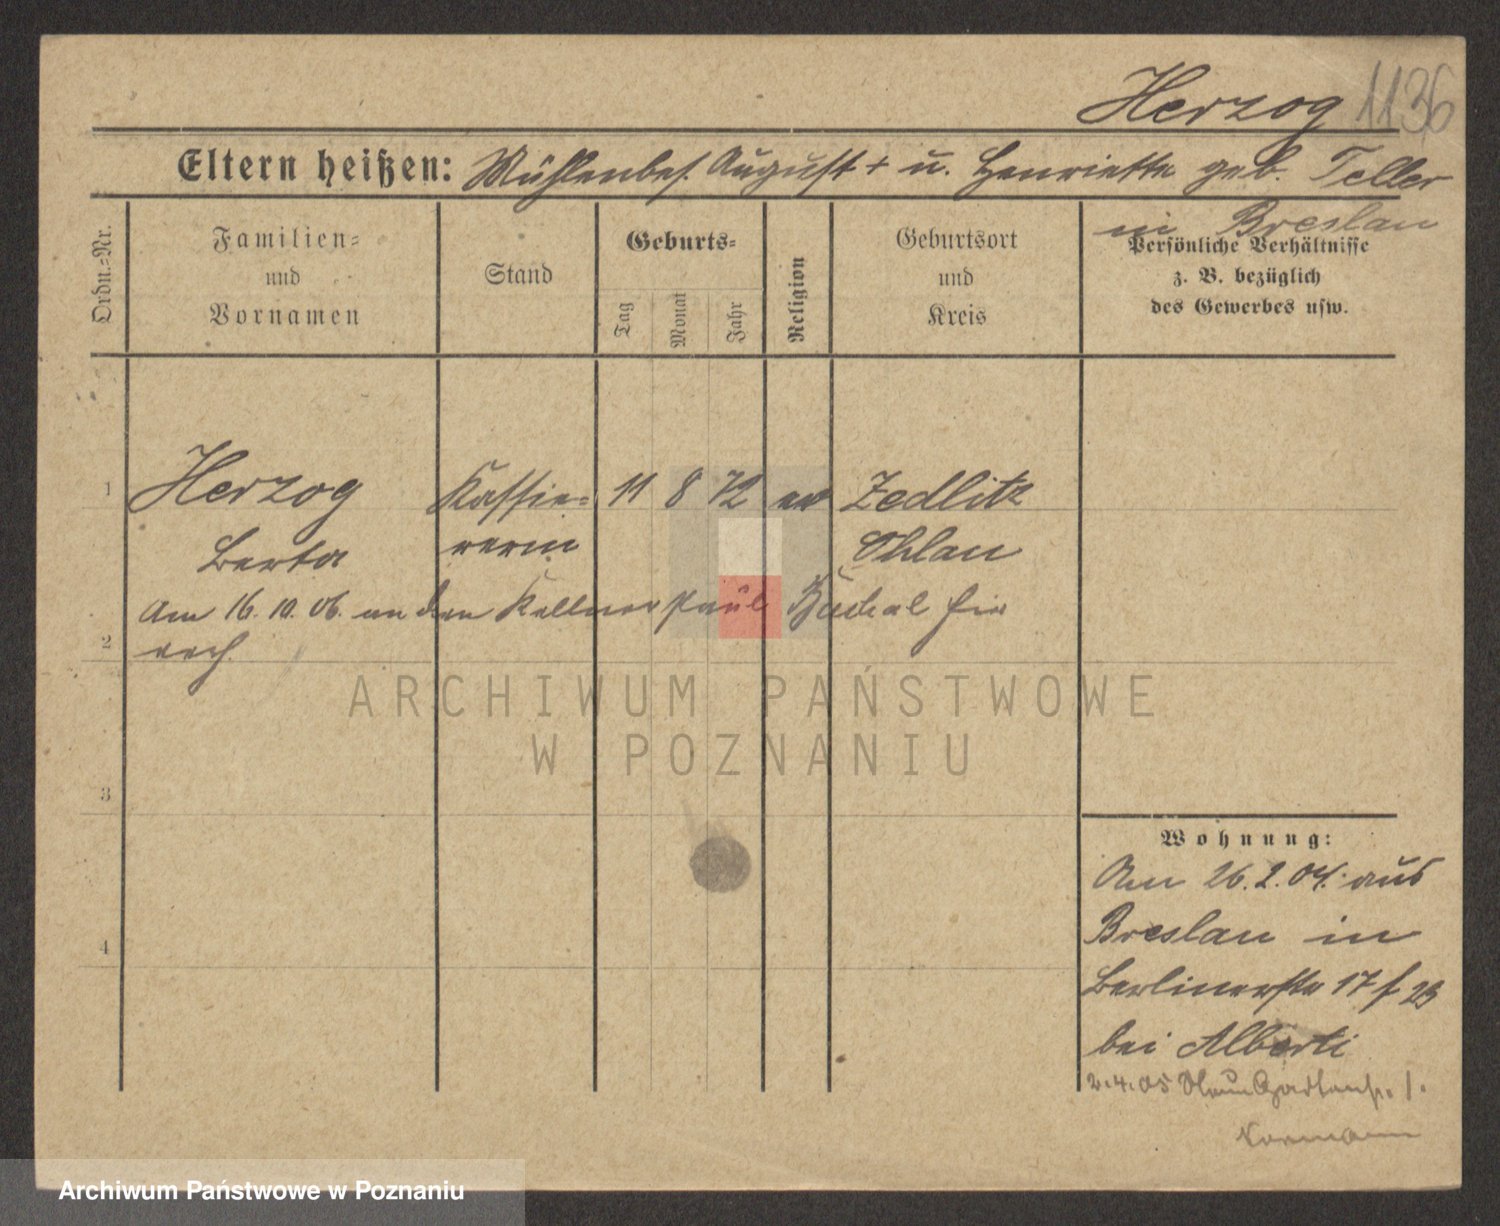 Herzog 1136
Eltern heißen: Mühlenbes. August + u. Henriette geb. Teller
in Breslau
Ordn.-Nr.
Familien-
und
Vornamen
Stand
Geburts-
Tag
Monat
Jahr
Religion
Geburtsort
und
Kreis
Persönliche Verhältnisse
z. B. bezüglich
des Gewerbes usw.
1 Herzog Kassie= 11 8 72 ev Zedlitz
Berta rerin Ohlau
Am 16. 10. 06. an den Kellner Paul hier
2 verh.
ARCHIWUM PAŃSTWOWE
W POZNANIU
3
4
Wohnung:
Am 26. 2. 04. aus
Breslau in
Berlinerstr 17
bei Alberti
2.4.05 Gartenstr. 1.
Archiwum Państwowe w Poznaniu